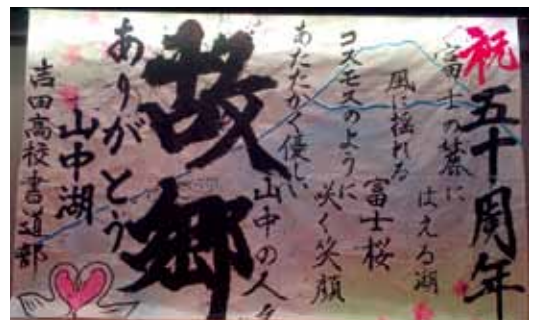 祝五十周年
富士の麓に
はえる湖
風に揺れる
富士桜
コスモスのように
咲く笑顔
あたたかく優しい
山中の人々
故郷
ありがとう
山中湖
吉田高校書道部